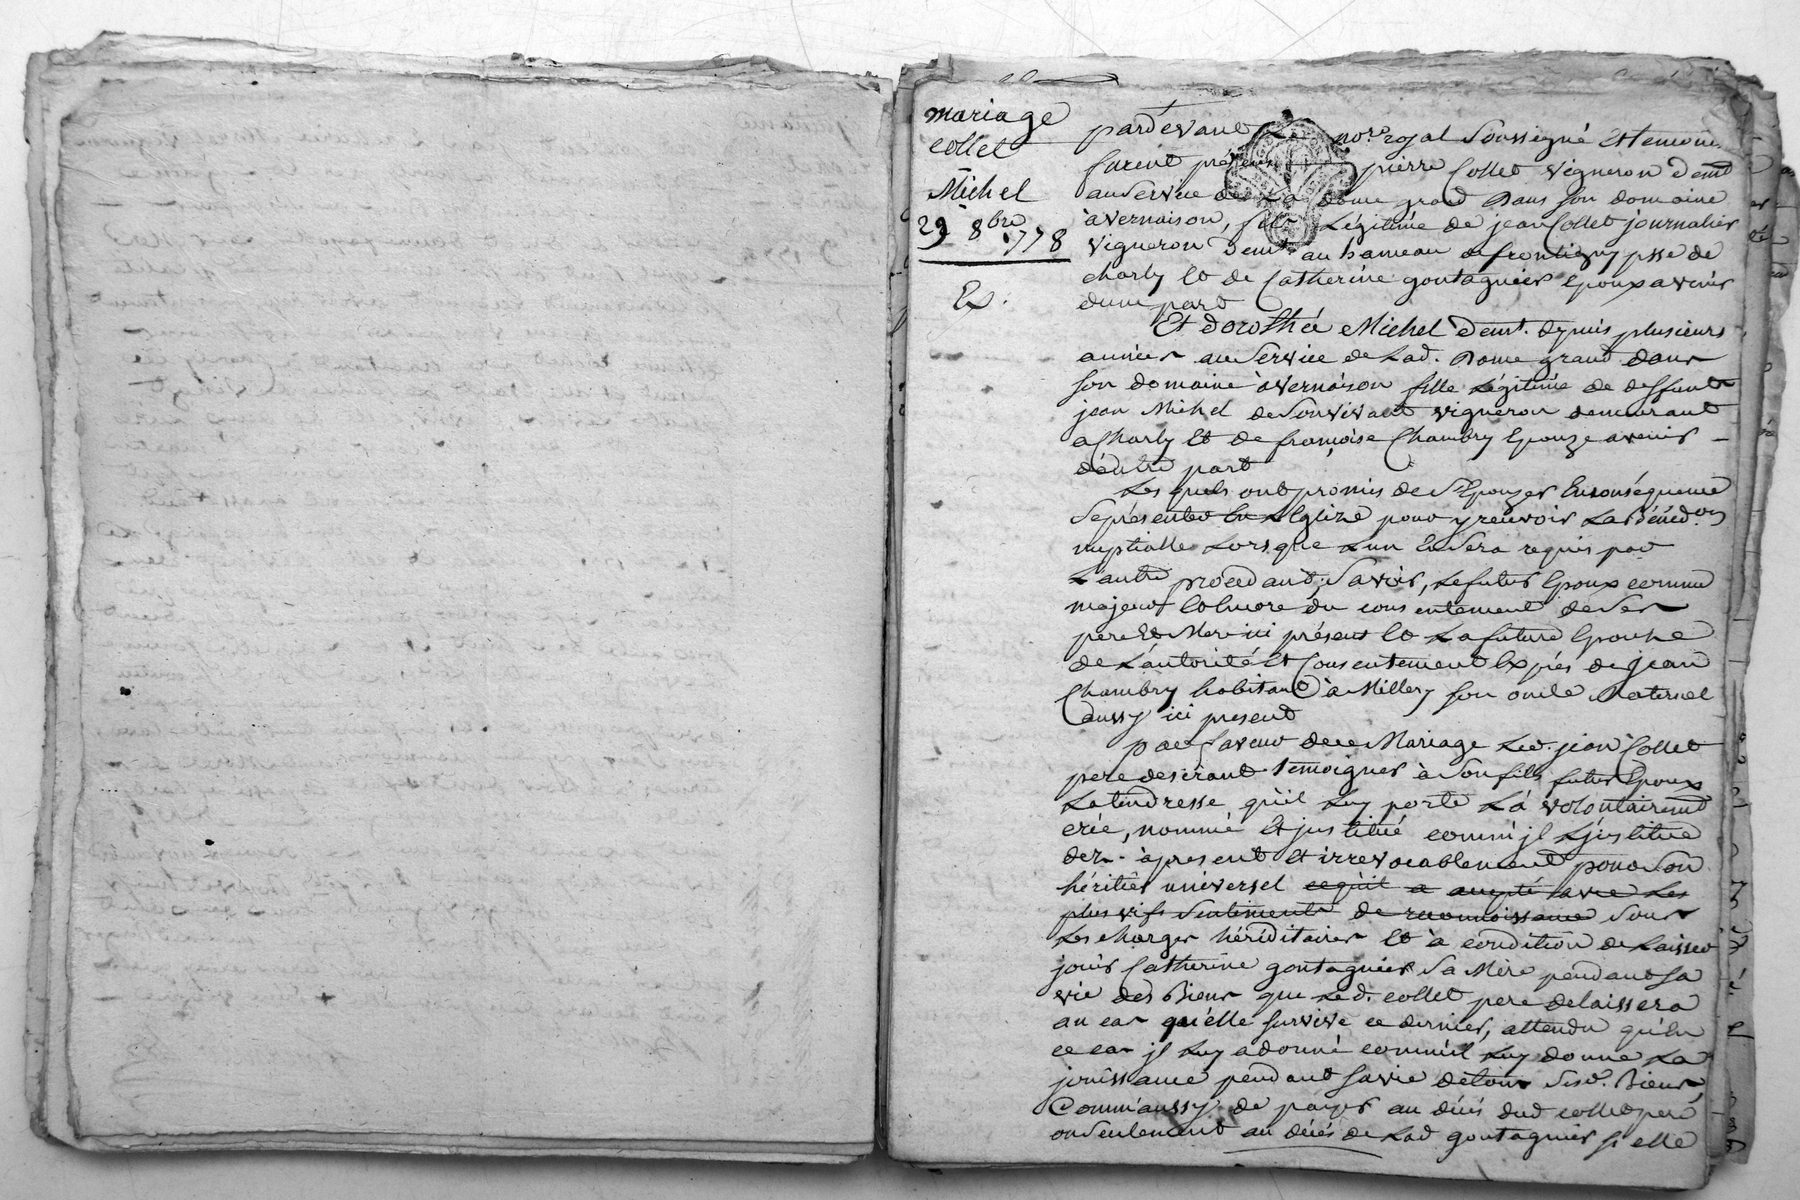 mariage
collet
Michel
29 8bre 1778
Ex.
pardevant Le nore royal Soussigné Et temoins
furent présens pierre Collet vigneron demt
au Service de La dame grand Dans son domaine
à vernaison, fils Légitime de jean Collet journalier
vigneron demt au hameau de frontigny psse de
charly Et de Catherine gontagnier Epoux avenir
dune part
Et dorothée Michel demt. depuis plusieurs
années au Service de Lad. Dame grand dans
son domaine à vernaison fille Légitime de deffunt
jean Michel de Son vivant vigneron demeurant
a Charly Et de françoise Chambry Epouze avenir
d'autre part
Les quels ont promis de S'Epouzer En conséquence
Se présenter En L'Eglize pour y recevoir La Bénédon
nuptialle Lorsque L'un En Sera requis par
L'autre procedant, Savoir, Le futur Epoux comme
majeur Et encore du consentement de Ses
pere Et Mere ici présens Et La future Epouze
de L'autorité Et Consentement Exprés de jean
Chambry habitant à Millery son oncle Maternel
aussy ici present
par faveur de ce Mariage Led. jean Collet
pere desirant temoigner à Son fils futur Epoux
La tendresse qu'il Luy porte L'a volontairemt
créé, nommé Et justitué comm'jl L'justitue
des à present Et irrevocablement pour Son
héritier universel ce qu'il a accepté avec Les
plus vifs Sentiments de reconnoissance Sous
Les charges héréditaires Et à condition de Laisser
jouir Catherine gontagnier Sa Mère pendant Sa
vie des Biens que Led. collet pere delaissera
au cas qu'elle Survive ce dernier, attendu qu'En
ce cas jl Luy a donné comm'il Luy donne La
jouissance pendant Sa vie de tous Sesd. Biens,
Comm'aussy de payer au décés dud collet pere
ou Seulement au décés de Lad gontagnier Si elle